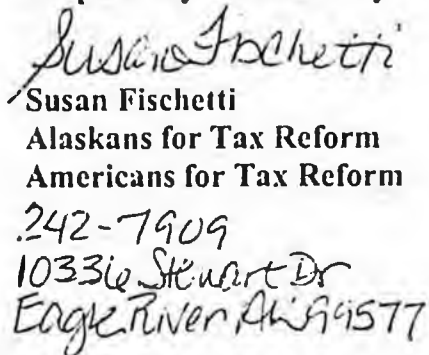 Susan Fischetti
Susan Fischetti
Alaskans for Tax Reform
Americans for Tax Reform
242-7909
10336 Stewart Dr
Eagle River, AK 99577